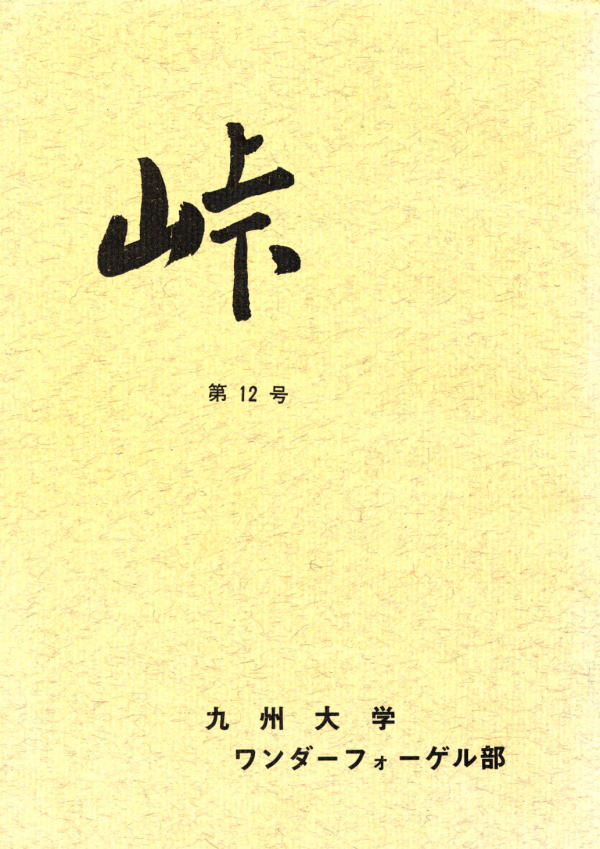 峠
第 12 号
九州大学
ワンダーフォーゲル部